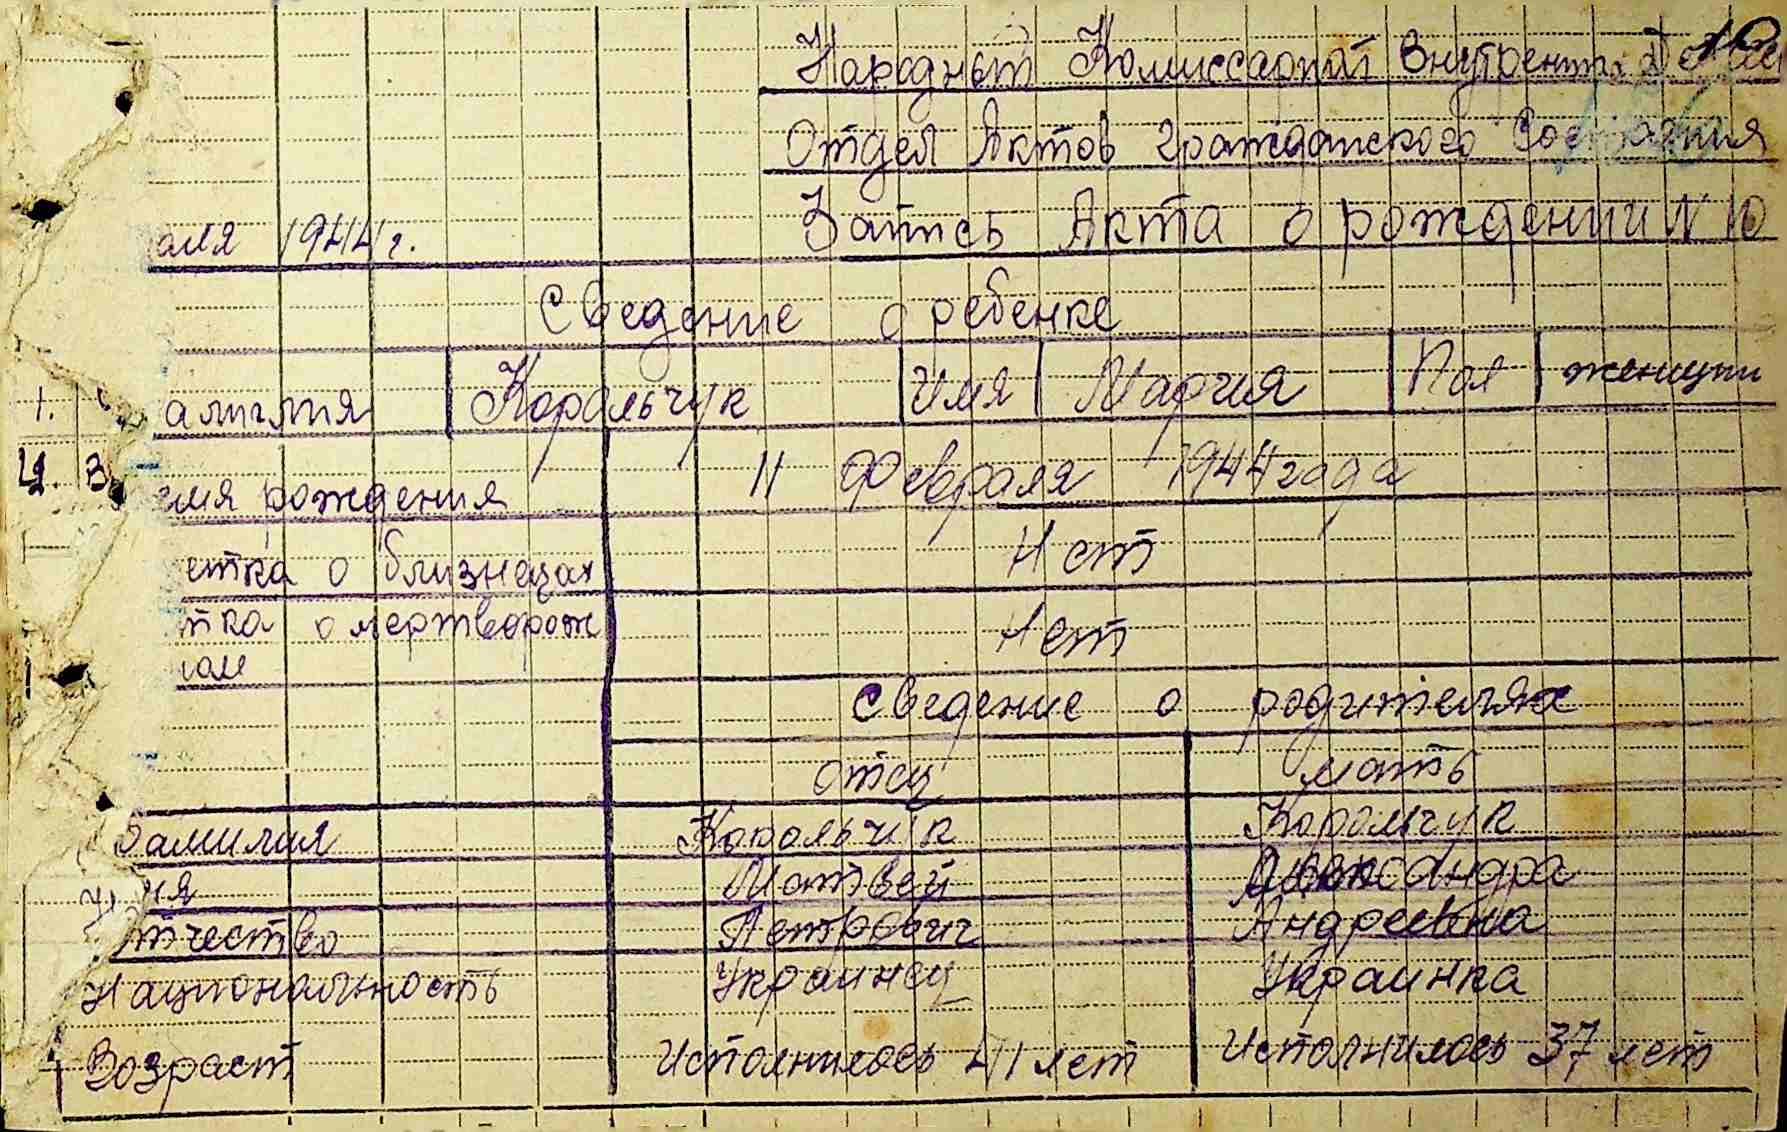 Народный Комиссариат Внутренних Дел
Отдел Актов гражданского Состояния
аля 1944 г.
Запись Акта о рождении N 10
Сведение о ребенке
1. амилия Корольчук Имя Мария Пол женщин
2. В емя рождения 11 Февраля 1944 года
етка о близнецах Нет
тка о мертворож Нет
ном
Сведение о родителях
отец мать
Фамилия Корольчук Корольчук
Имя Матвей Александра
Отчество Петрович Андреевна
Национальность Украинец Украинка
Возраст Исполнилось 41 лет Исполнилось 37 лет